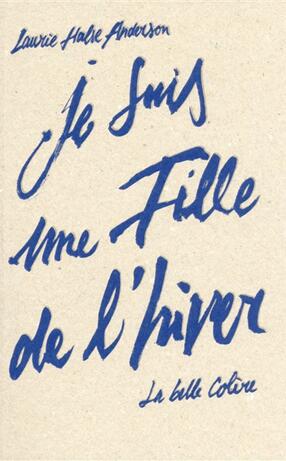 Laurie Halse Anderson
je suis
une Fille
de l'hiver
La belle Colère